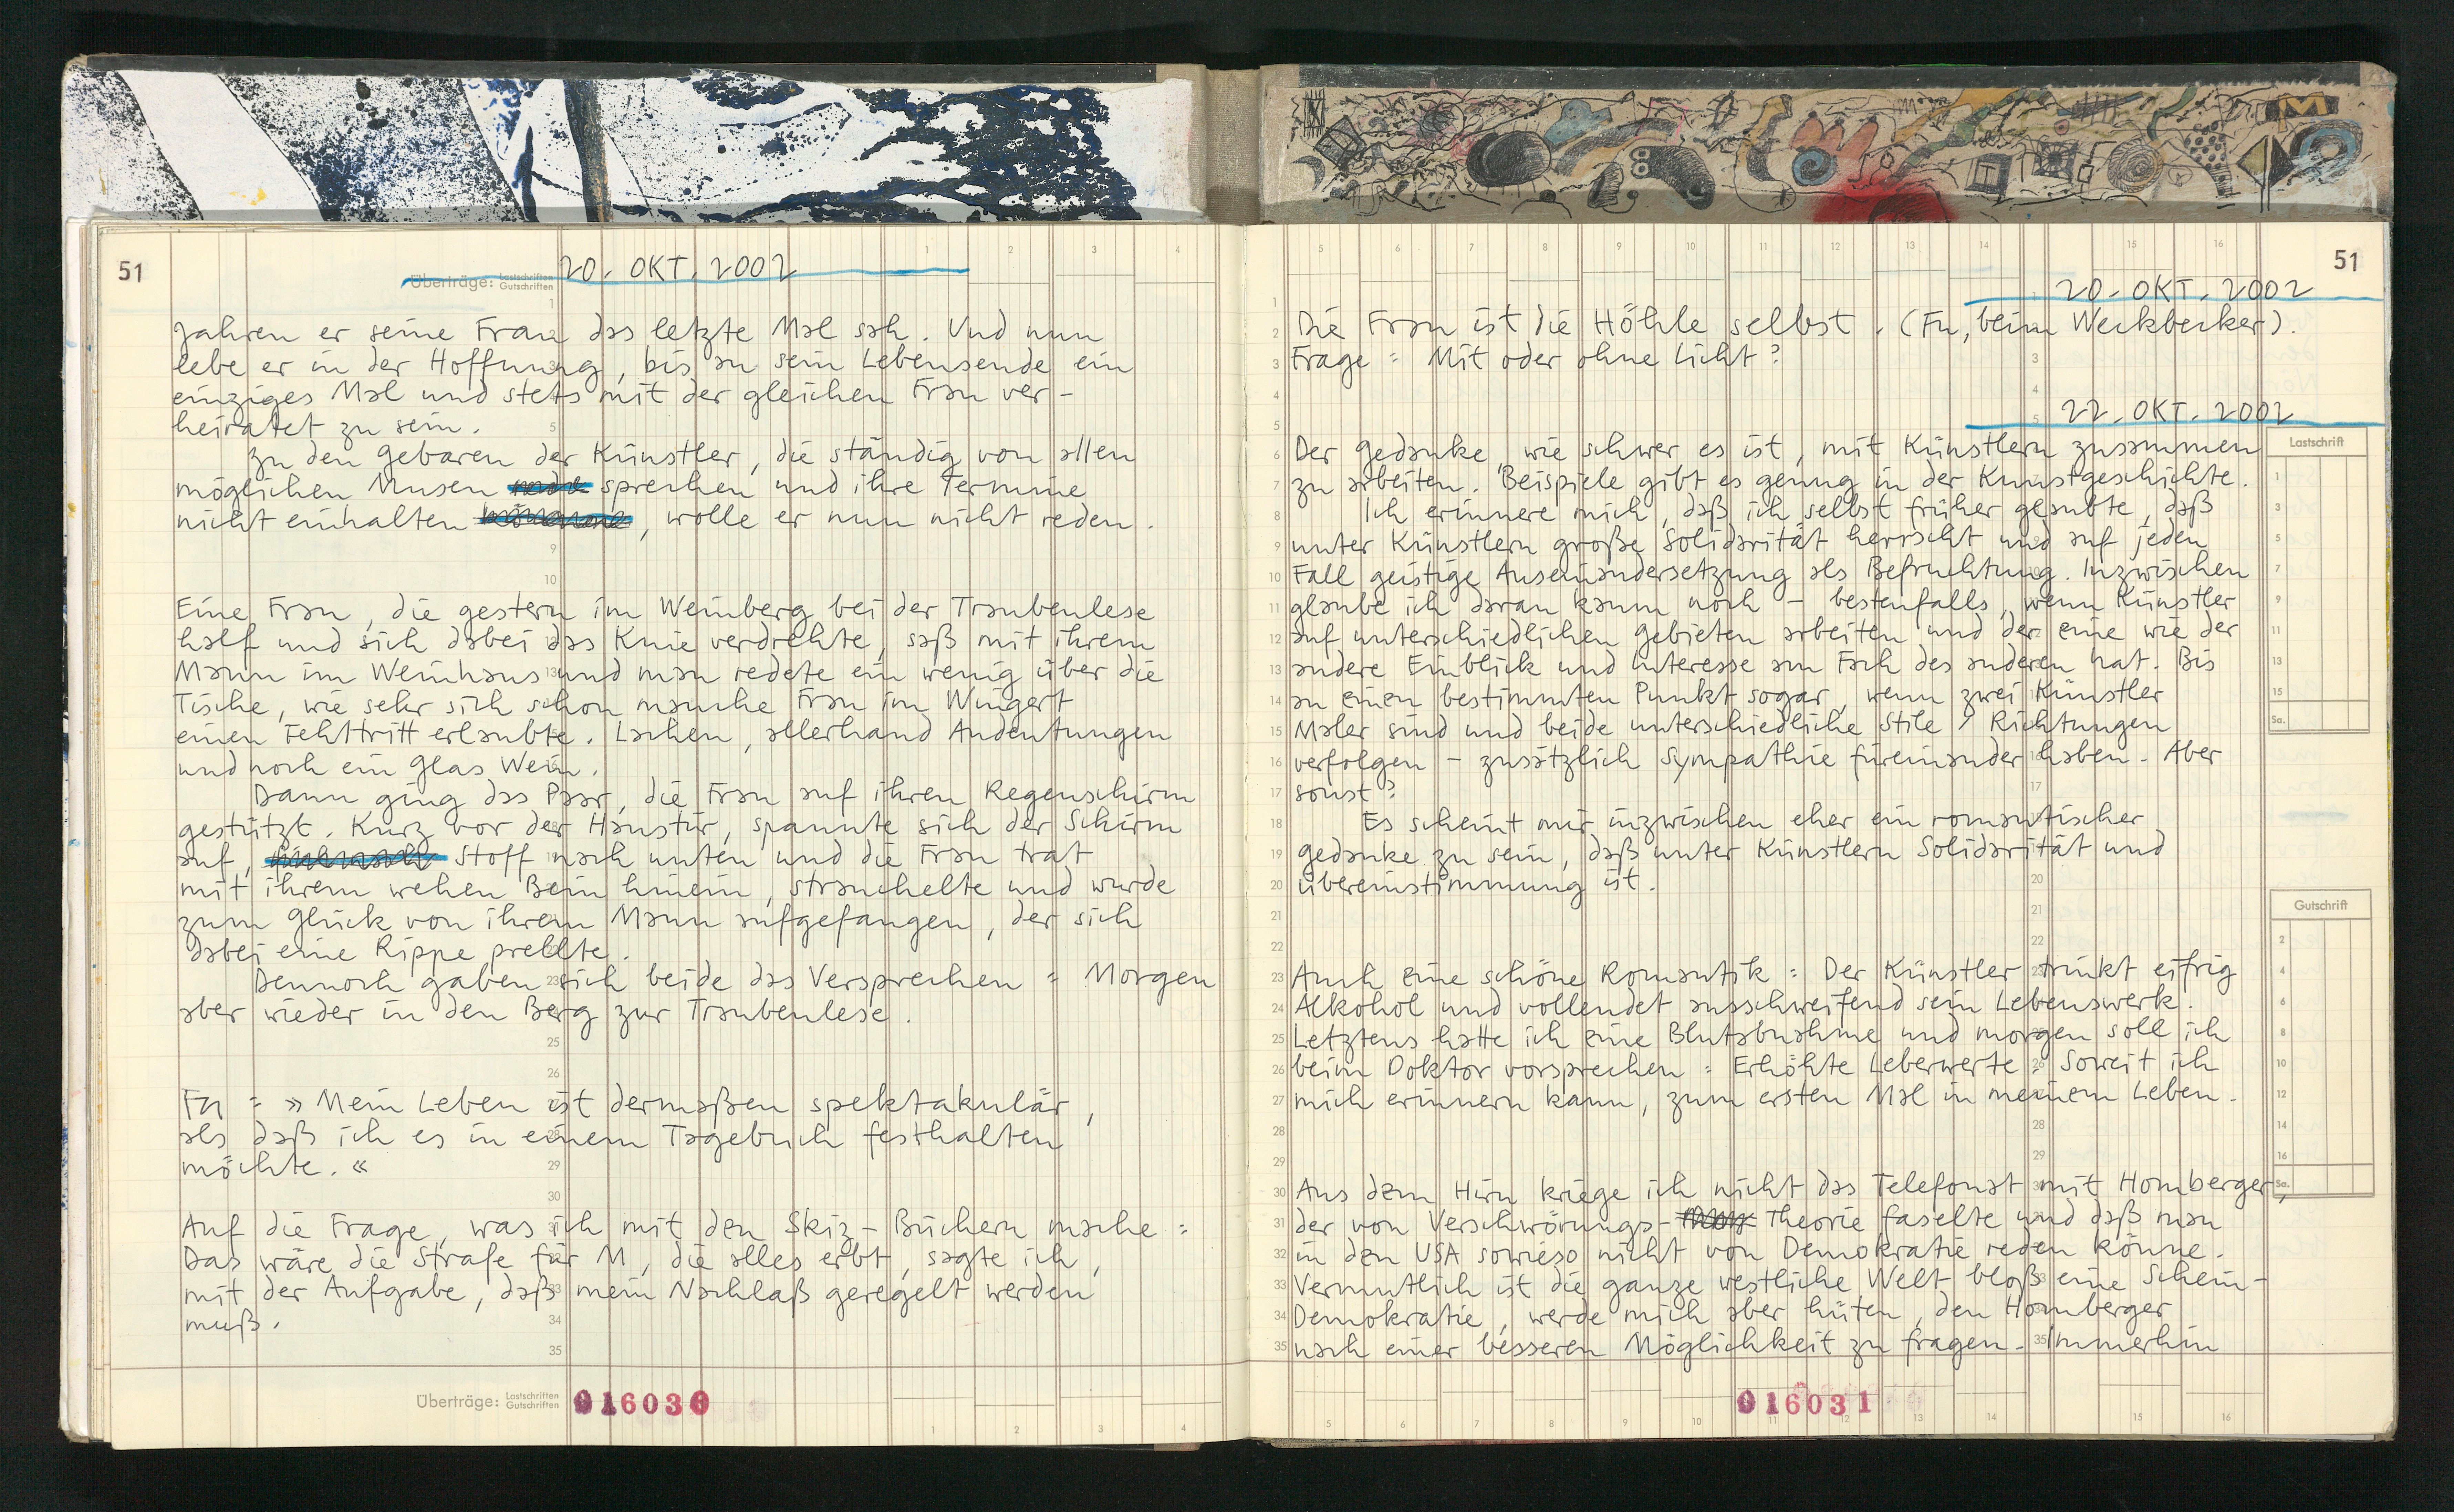 51
Überträge: Lastschriften Gutschriften
20. OKT. 2002
Jahren er seine Frau das letzte Mal sah. Und nun
lebe er in der Hoffnung, bis an sein Lebensende ein
einziges Mal und stets mit der gleichen Frau ver-
heiratet zu sein.
Zu den Gebaren der Künstler, die ständig von allen
möglichen Musen sprechen und ihre Termine
nicht einhalten, wolle er nun nicht reden.
Eine Frau, die gestern im Weinberg bei der Traubenlese
half und sich dabei das Knie verdrehte, saß mit ihrem
Mann im Weinhaus und man redete ein wenig über die
Tische, wie sehr sich schon manche Frau im Wingert
einen Fehltritt erlaubte. Lachen, allerhand Andeutungen
und noch ein Glas Wein.
Dann ging das Paar, die Frau auf ihren Regenschirm
gestützt. Kurz vor der Haustür, spannte sich der Schirm
auf, Stoff nach unten und die Frau trat
mit ihrem wehen Bein hinein, strauchelte und wurde
zum Glück von ihrem Mann aufgefangen, der sich
dabei eine Rippe prellte.
Dennoch gaben sich beide das Versprechen: Morgen
aber wieder in den Berg zur Traubenlese.
Fu: »Mein Leben ist dermaßen spektakulär,
als daß ich es in einem Tagebuch festhalten
möchte.«
Auf die Frage, was ich mit den Skiz-Büchern mache:
Das wäre die Strafe für M, die alles erbt, sagte ich,
mit der Aufgabe, daß mein Nachlaß geregelt werden
muß.
Überträge: Lastschriften Gutschriften
016030
51
20. OKT. 2002
Die Frau ist die Höhle selbst. (Fu, beim Weckbecker).
Frage: Mit oder ohne Licht?
22. OKT. 2002
Der Gedanke, wie schwer es ist, mit Künstlern zusammen
zu arbeiten. Beispiele gibt es genug in der Kunstgeschichte.
Ich erinnere mich, daß ich selbst früher glaubte, daß
unter Künstlern große Solidarität herrscht und auf jeden
Fall geistige Auseinandersetzung als Befruchtung. Inzwischen
glaube ich daran kaum noch - bestenfalls, wenn Künstler
auf unterschiedlichen Gebieten arbeiten und der eine wie der
andere Einblick und Interesse am Fach des anderen hat. Bis
an einen bestimmten Punkt sogar, wenn zwei Künstler
Maler sind und beide unterschiedliche Stile / Richtungen
verfolgen - zusätzlich Sympathie füreinander haben. Aber
sonst?
Es scheint mir inzwischen eher ein romantischer
Gedanke zu sein, daß unter Künstlern Solidarität und
Übereinstimmung ist.
Auch eine schöne Romantik: Der Künstler trinkt eifrig
Alkohol und vollendet ausschweifend sein Lebenswerk.
Letztens hatte ich eine Blutabnahme und morgen soll ich
beim Doktor vorsprechen: Erhöhte Leberwerte, soweit ich
mich erinnern kann, zum ersten Mal in meinem Leben.
Aus dem Hirn kriege ich nicht das Telefonat mit Homberger,
der von Verschwörungs-Theorie faselte und daß man
in den USA sowieso nicht von Demokratie reden könne.
Vermutlich ist die ganze westliche Welt bloß eine Schein-
Demokratie, werde mich aber hüten, den Homberger
nach einer besseren Möglichkeit zu fragen. Immerhin
Lastschrift
Sa.
Gutschrift
Sa.
016031